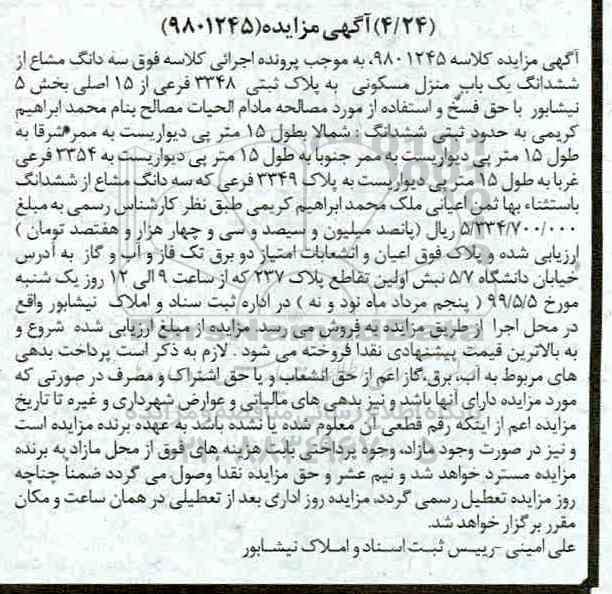 (۴/۲۴) آگهی مزایده (۹۸۰۱۲۴۵)
آگهی مزایده کلاسه ۹۸۰۱۲۴۵، به موجب پرونده اجرائی کلاسه فوق سه دانگ مشاع از
ششدانگ یک باب منزل مسکونی به پلاک ثبتی ۳۳۴۸ فرعی از ۱۵ اصلی بخش ۵
نیشابور با حق فسخ و استفاده از مورد مصالحه مادام الحیات مصالح بنام محمد ابراهیم
کریمی به حدود ثبتی ششدانگ : شمالا بطول ۱۵ متر پی دیواریست به ممر شرقا به
طول ۱۵ متر پی دیواریست به ممر جنوبا به طول ۱۵ متر پی دیواریست به ۳۳۵۴ فرعی
غربا به طول ۱۵ متر پی دیواریست به پلاک ۳۳۴۹ فرعی که سه دانگ مشاع از ششدانگ
باستثناء بها ثمن اعیانی ملک محمد ابراهیم کریمی طبق نظر کارشناس رسمی به مبلغ
۵/۳۳۴/۷۰۰/۰۰۰ ریال (پانصد میلیون و سیصد و سی و چهار هزار و هفتصد تومان )
ارزیابی شده و پلاک فوق اعیان و انشعابات امتیاز دو برق تک فاز و آب و گاز به آدرس
خیابان دانشگاه ۵/۷ نبش اولین تقاطع پلاک ۲۳۷ که از ساعت ۹ الی ۱۲ روز یک شنبه
مورخ ۹۹/۵/۵ ( پنجم مرداد ماه نود و نه ) در اداره ثبت سناد و املاک نیشابور واقع
در محل اجرا از طریق مزایده به فروش می رسد. مزایده از مبلغ ارزیابی شده شروع و
به بالاترین قیمت پیشنهادی نقدا فروخته می شود . لازم به ذکر است پرداخت بدهی
های مربوط به آب، برق،گاز اعم از حق انشعاب و یا حق اشتراک و مصرف در صورتی که
مورد مزایده دارای آنها باشد و نیز بدهی های مالیاتی و عوارض شهرداری و غیره تا تاریخ
مزایده اعم از اینکه رقم قطعی آن معلوم شده یا نشده باشد به عهده برنده مزایده است
و نیز در صورت وجود مازاد، وجوه پرداختی بابت هزینه های فوق از محل مازاد به برنده
مزایده مسترد خواهد شد و نیم عشر و حق مزایده نقدا وصول می گردد ضمنا چناچه
روز مزایده تعطیل رسمی گردد، مزایده روز اداری بعد از تعطیلی در همان ساعت و مکان
مقرر برگزار خواهد شد.
علی امینی -رییس ثبت اسناد و املاک نیشابور